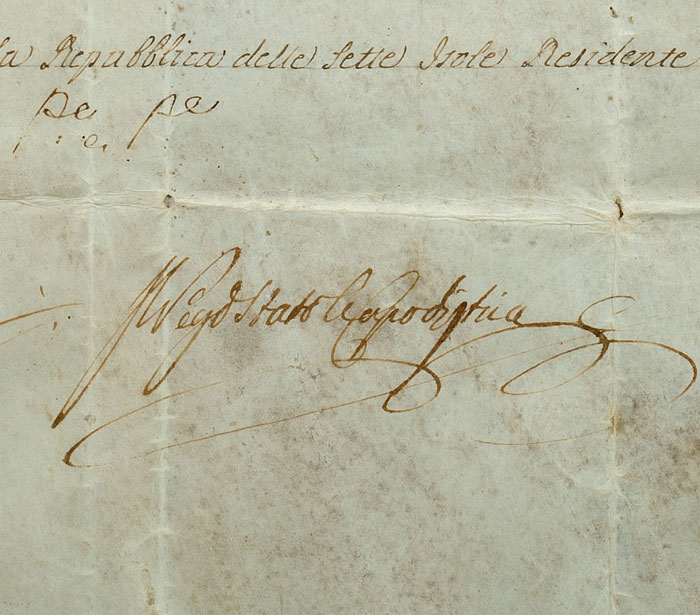 la Repubblica delle Sette Isole Residente
pe pe
Stato Capodistria